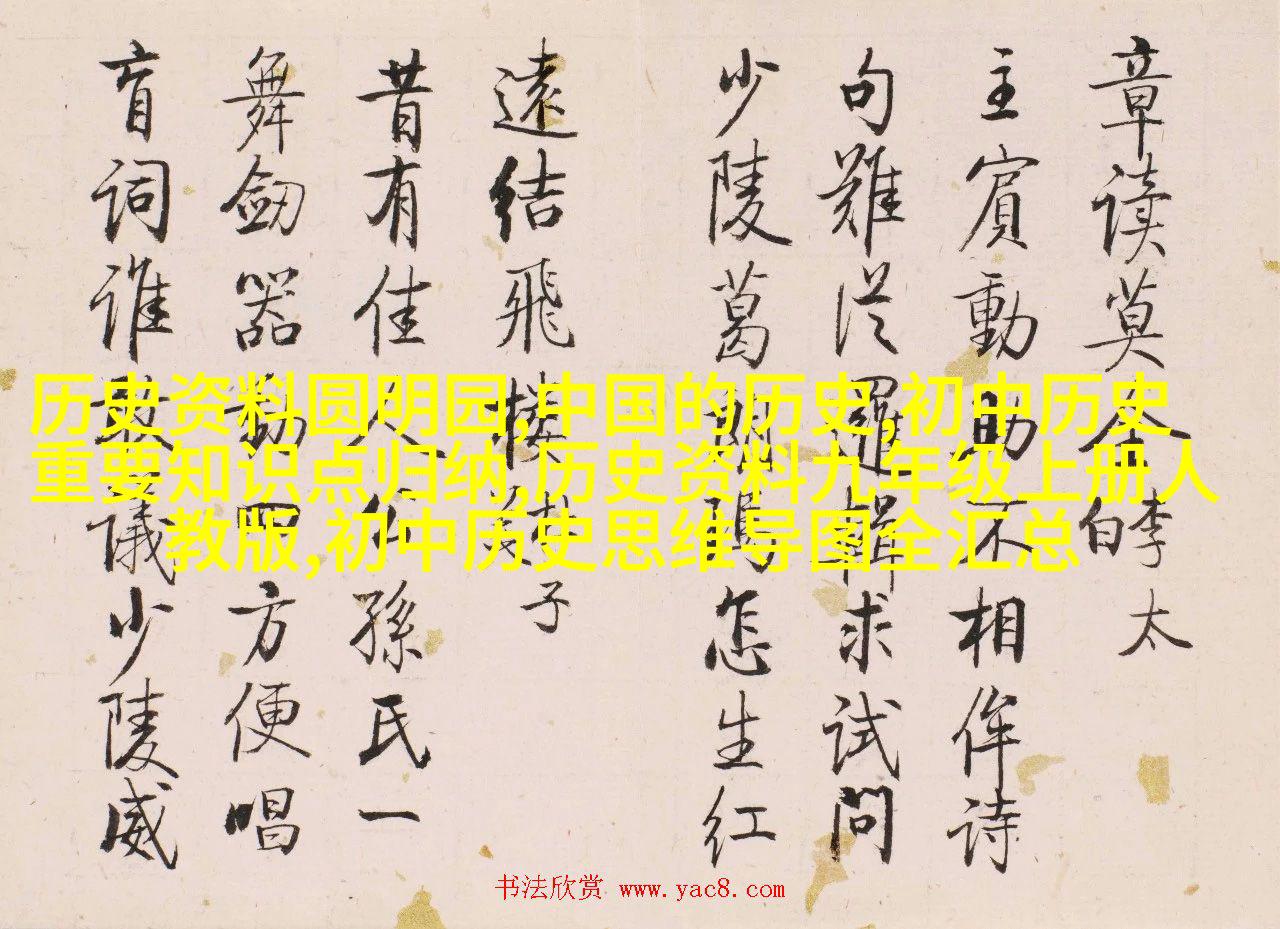 章读莫全李太
白
主賓動助不相侔诗
句難從羅緝求试问
少陵葛怎生红
遠结飛楼子
昔有佳人公孫氏一
舞劒器動四方便唱
盲词谁敢議少陵威
历史资料圆明园,中国的历史,初中历史
重要知识点归纳,历史资料九年级上册人
教版,初中历史思维导图全汇总
书法欣赏 www.yac8.com